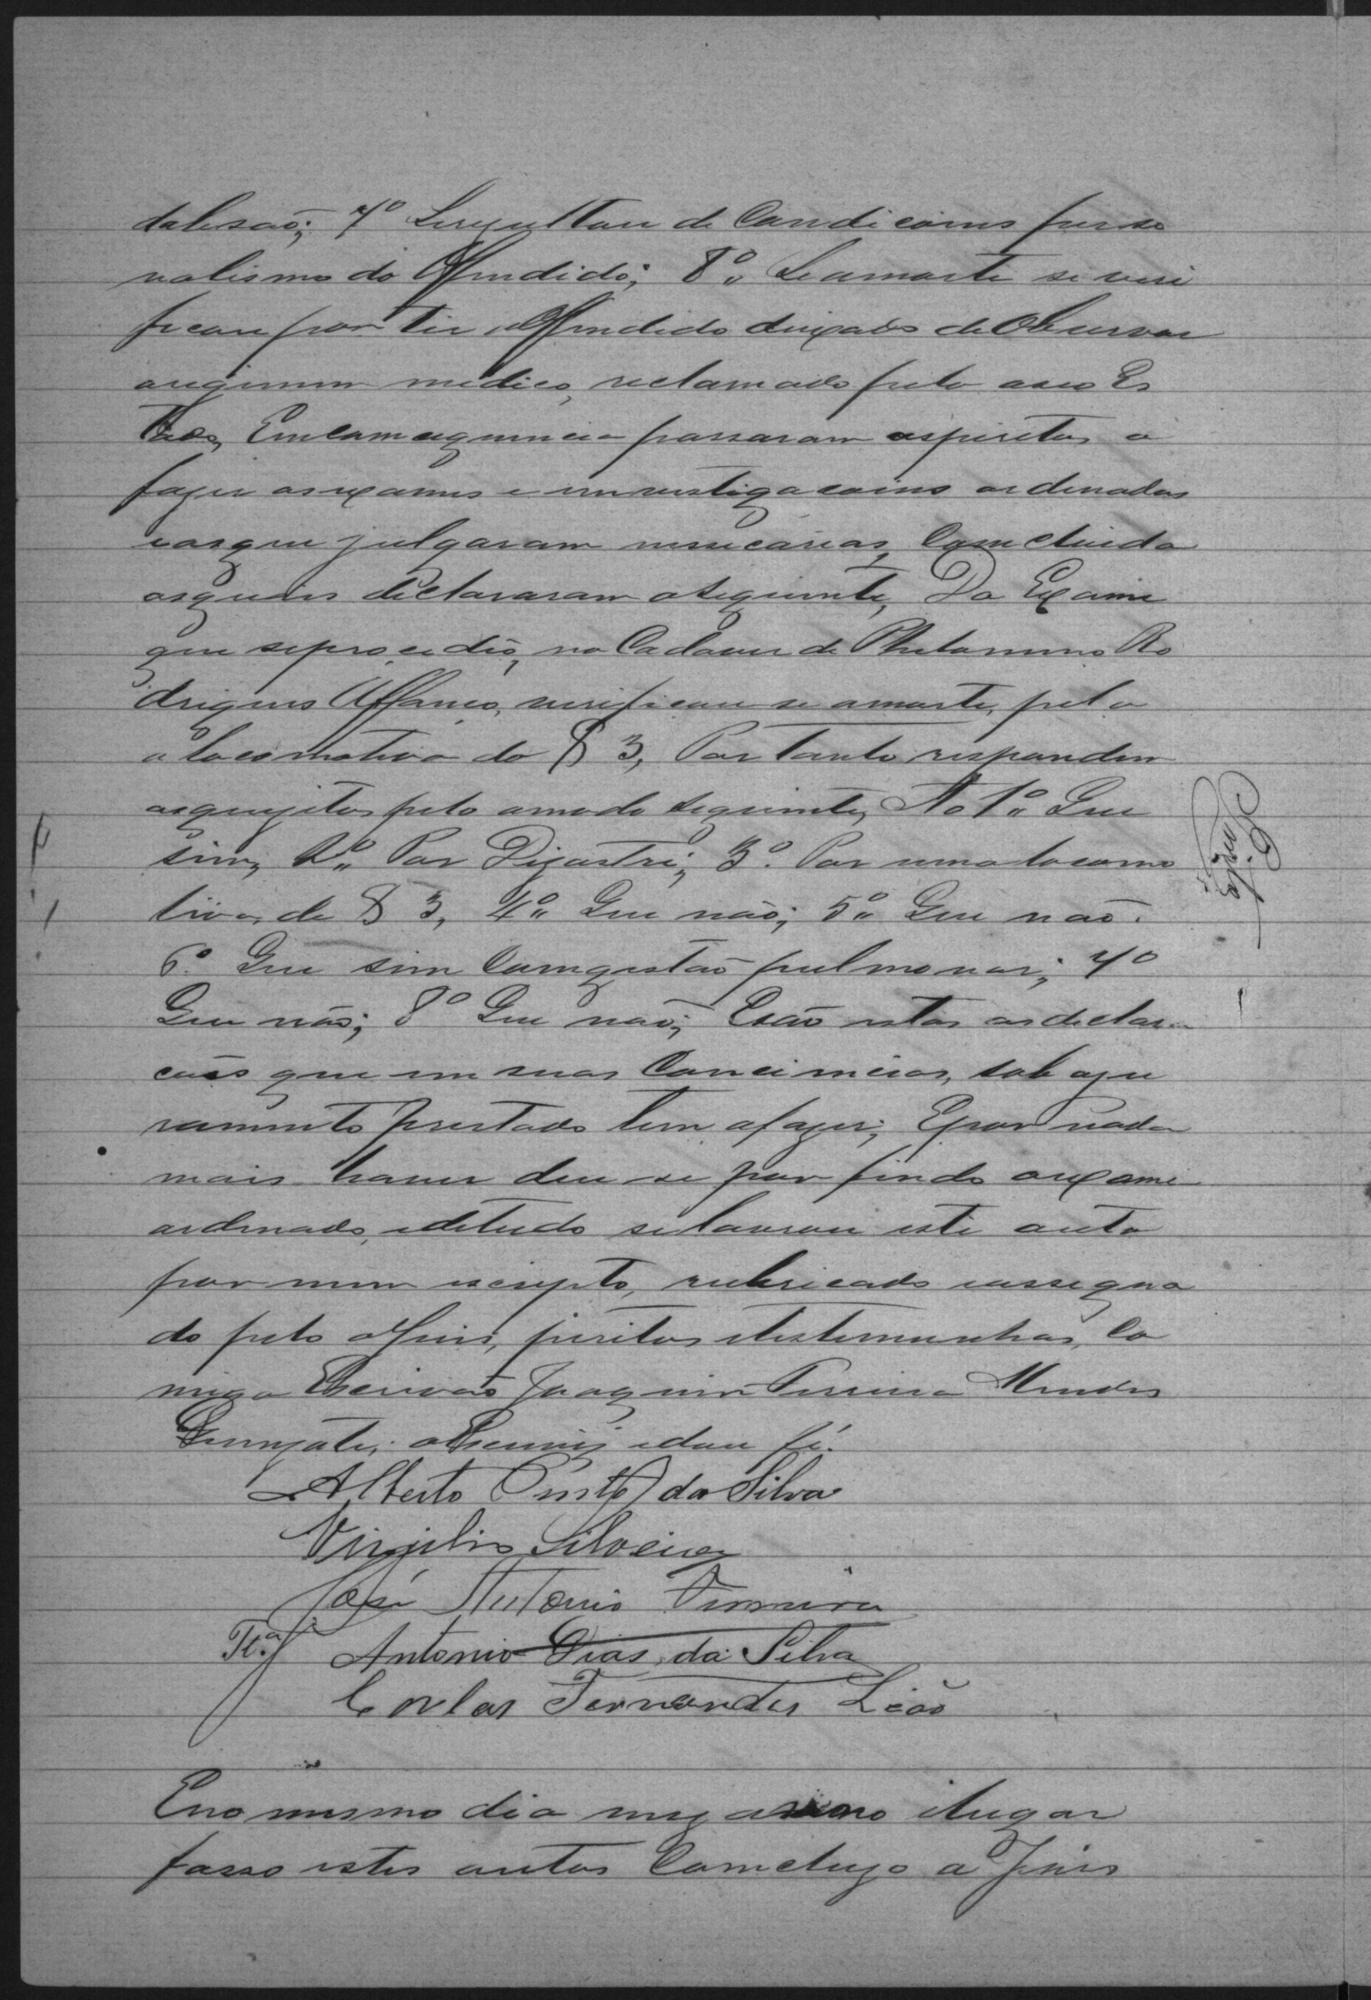 dalesão; 7º Seresultou de Condicoins perso
nalismo do Offendido; 8º Seamorte se veri
ficou por ter o Offendido deixado de Observar
oregimem medico, reclamado pelo seo Es
tado, Emcomcequencia passaram osperitos a
fazer osexames e investigacoins ordenadas
easque julgaram nessecarias, Comcluida
asquais declararam oSeguinte, Do Exame
que seprocedeo, no Cadaver de Philomeno Ro
drigues Affonço, verificou se amorte, pela
a locomotiva do S 3, Por tanto respondem
osquezitos pelo amodo seguinte, Ao 1º Que
sim, 2º Por Dizastre; 3º Por uma locomo
tiva, do S 3, 4º Que não; 5º Que não.
6º Que sim Comgestão pulmonar; 7º
Que não; 8º Que não; Esão estas asdeclara
coês que em suas Conciencias, sob oju
ramento prestado tem afazer; Epor nada
mais haver deu se por findo oexame
ordenado, edetudo selavrou este auto
por mim escripto, rubricado eassegna
do pelo oJuis, peritos etestemunhas, Co
migo Escrivão Joaquim Pereira Mendes
oEscrevij edou fé.
Alberto da Silva
Virgilio Silveira
José Antonio Ferreira
Tª Antonio Dias da Silva
Carlos Fernandes Leão
Eno mesmo dia mez anno elugar
fasso estes autos Comcluzo a Juis